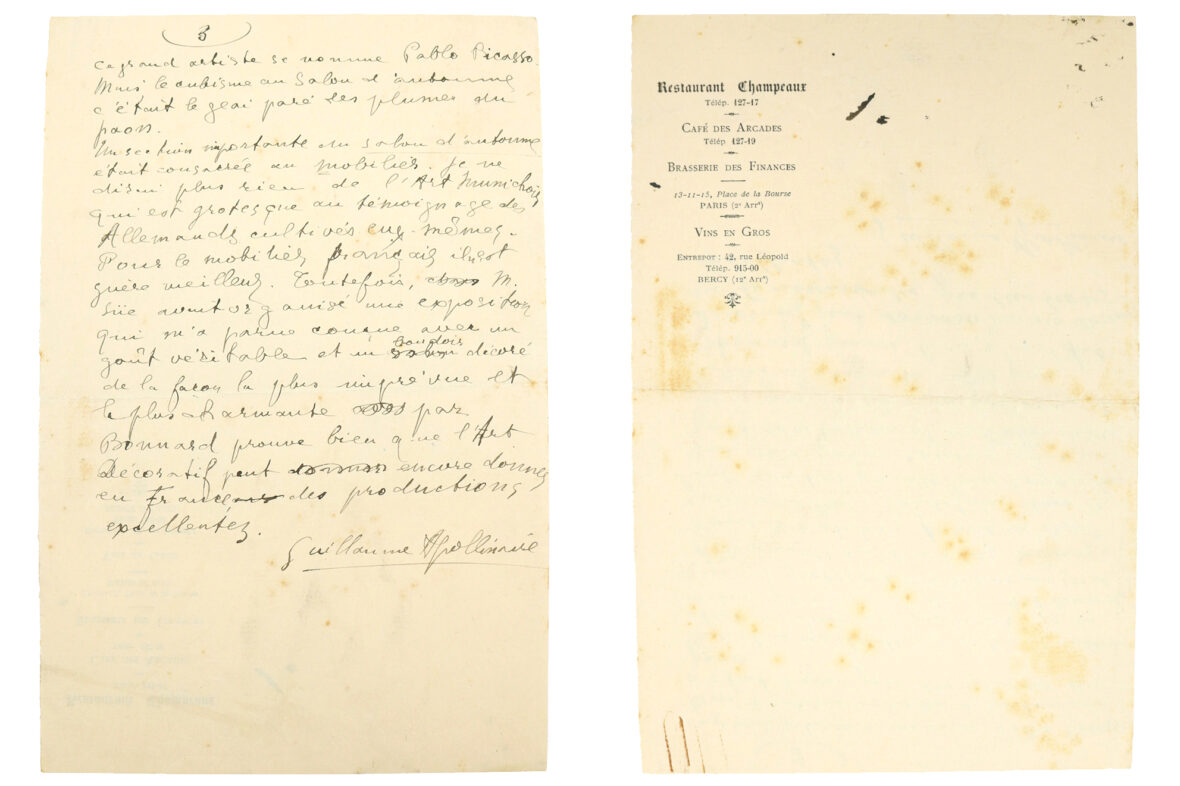 3
ce grand artiste se nomme Pablo Picasso.
Mais le cubisme au Salon d'automne
c'était le geai paré des plumes du
paon.
Un section importante du salon d'automne
était consacrée au mobilier. Je ne
dirai plus rien de l'Art Munichois
qui est grotesque au témoignage des
Allemands cultivés eux-mêmes.
Pour le mobilier français il n'est
guère meilleur. Toutefois, M.
Süe avait organisé une exposition
qui m'a parue conçue avec un
goût véritable et un boudoir décoré
de la façon la plus imprévue et
la plus charmante par
Bonnard prouve bien que l'Art
Décoratif peut encore donner
en France des productions
excellentes.
Guillaume Apollinaire
Restaurant Champeaux
Télép. 127-17
CAFÉ DES ARCADES
Télép 127-19
BRASSERIE DES FINANCES
13-11-15, Place de la Bourse
PARIS (2e Arrt)
VINS EN GROS
ENTREPOT : 42, rue Léopold
Télép. 915-00
BERCY (12e Arrt)